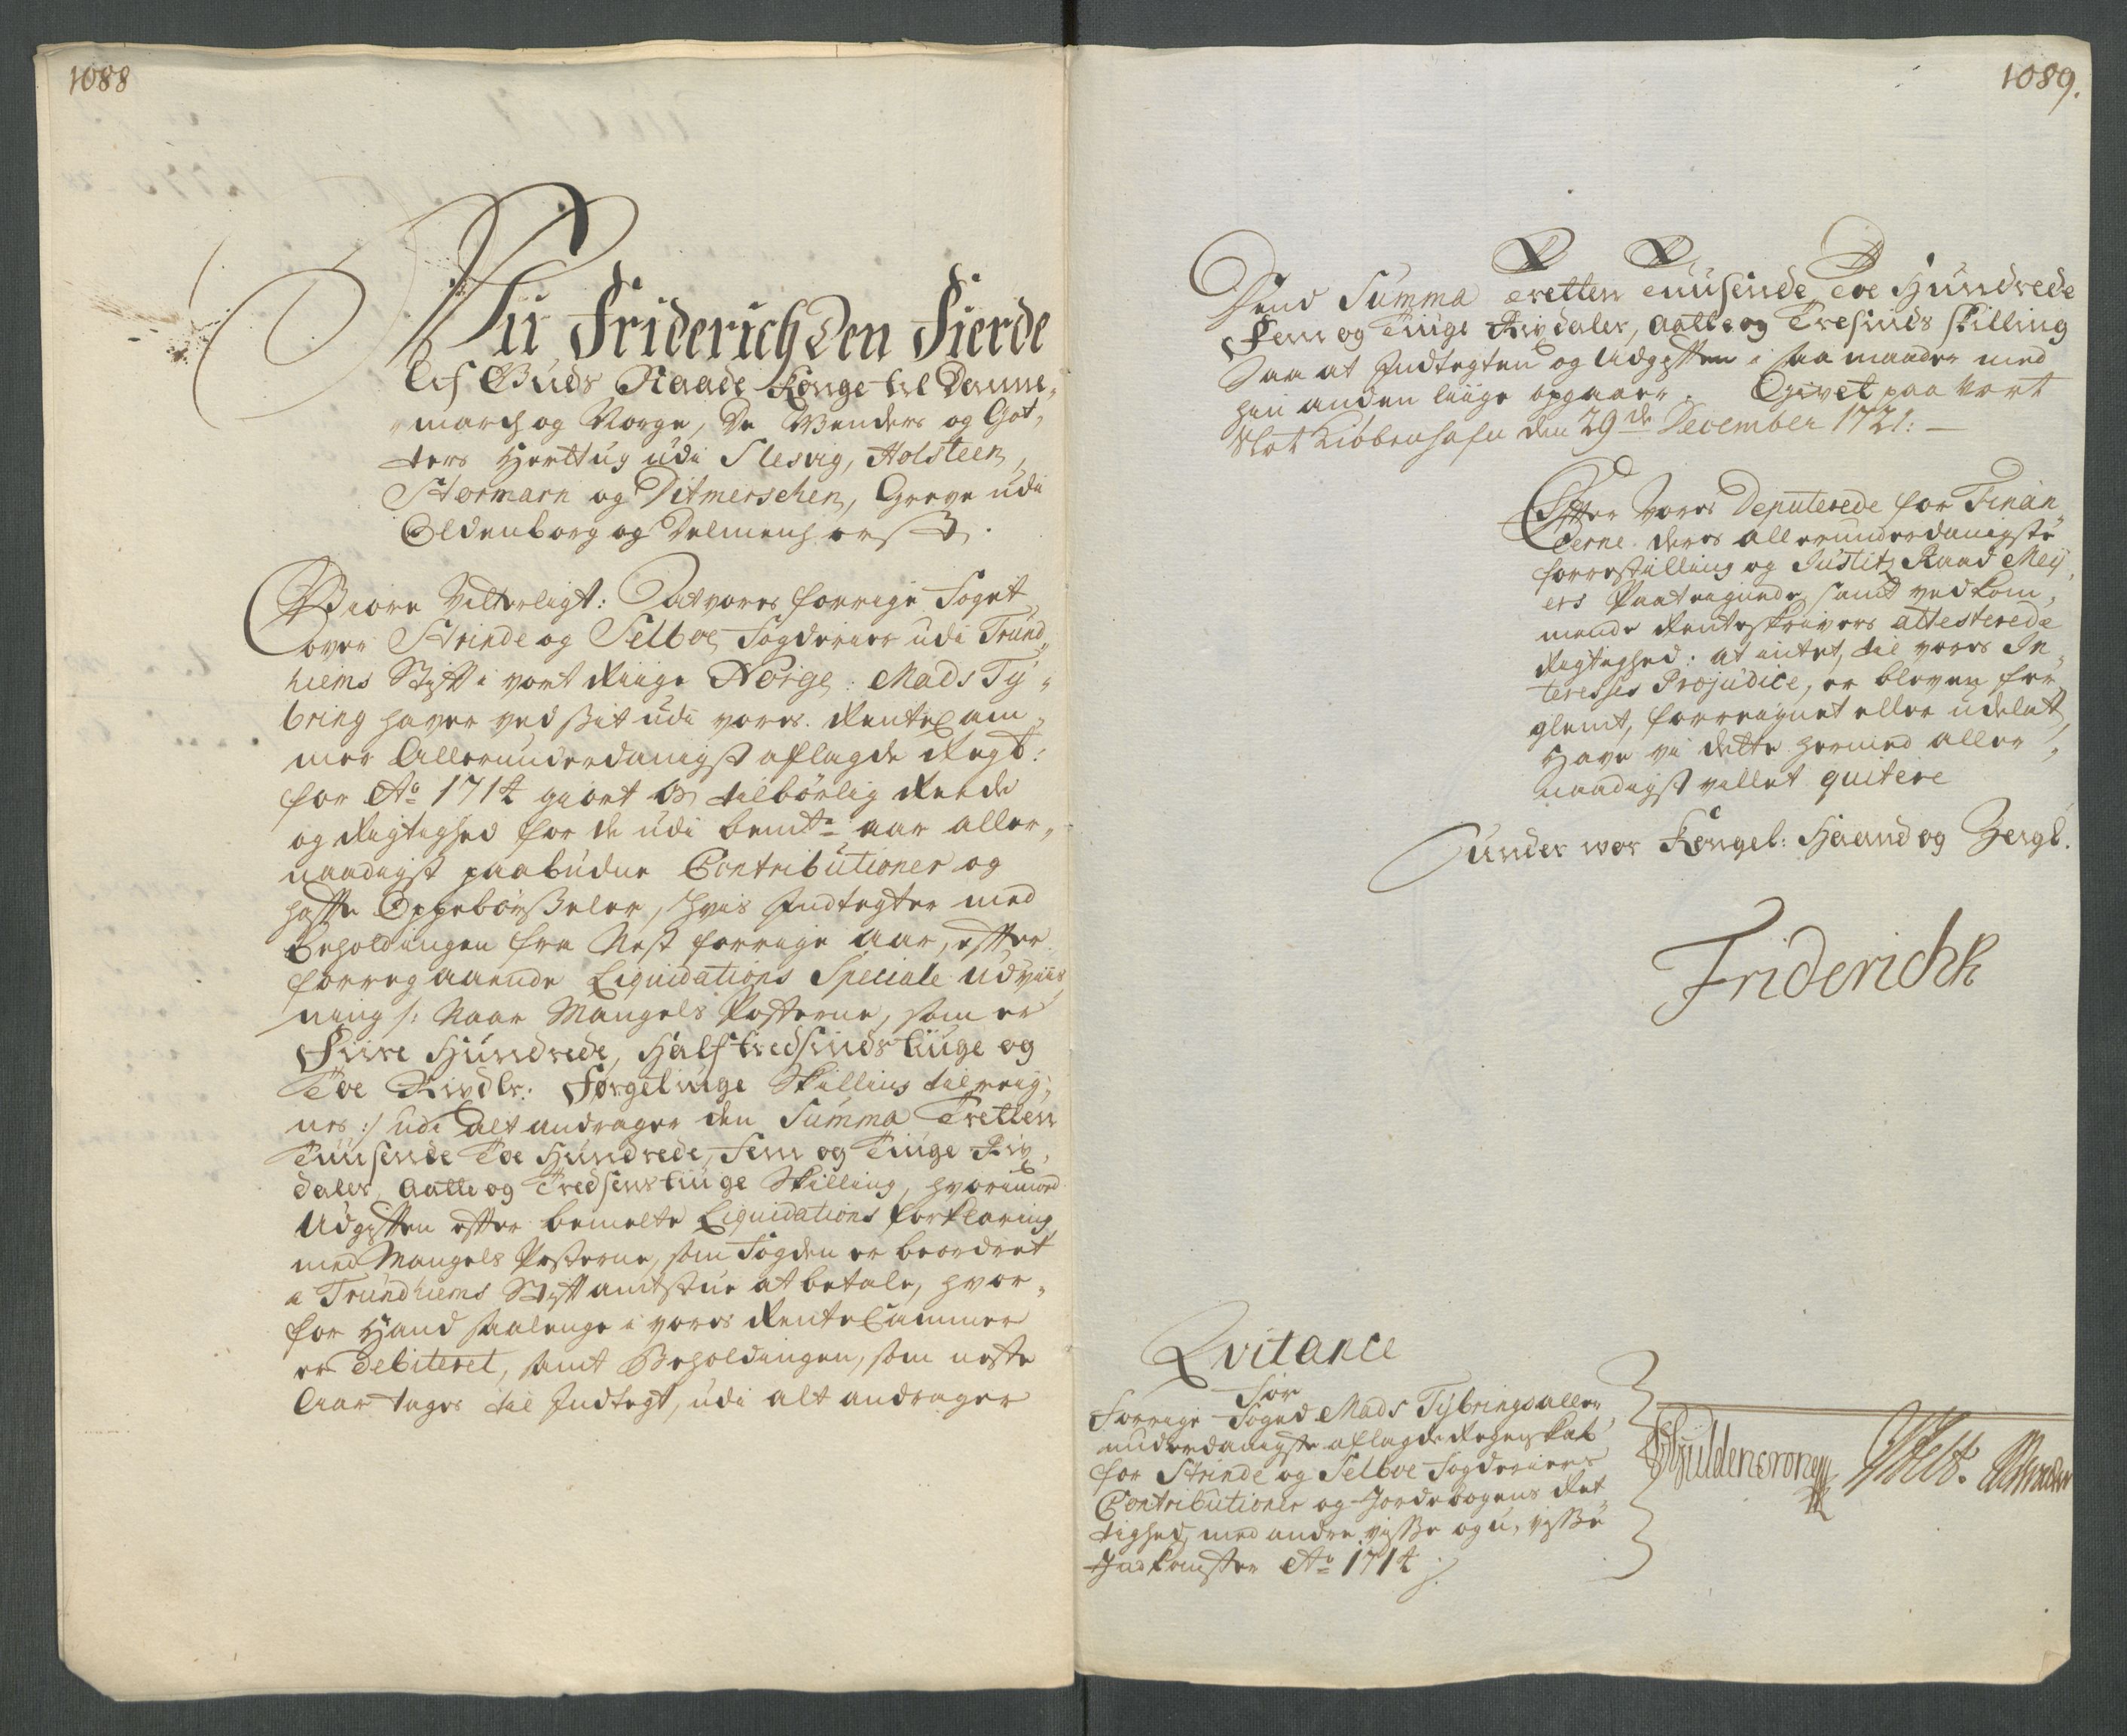 1088
Wii Friderich den Fierde
Af Guds Naade Konge til Danne-
march og Norge, De Wenders og Got-
ters Herttug udi Slesvig, Holsteen,
Stormarn og Ditmerschen, Greve udi
Oldenborg og Delmenhorst
Giøre Vitterligt: At vores forrige Foget
over Strinde og Selboe Fogderier udi Trund-
hiems Stift i vort Riige Norge: Mads Ty-
bring haver ved sit udi vores RenteCam-
mer Allerunderdanigst aflagde Regt:
for Ao 1714 giort os tilbørlig Rede
og Rigtighed for de udi bemte aar aller-
naadigst paabudne Contributioner og
hafte Oppebørseler, hvis Indtegter med
Beholdingen fra Nest forrige aar, efter
forregaaende Liquidations Speciale udviis-
ning /: Naar Mangels Posterne, som er
Fiire Hundrede, Halftredsindstiuge og
Toe Rixdlr: Førgetiuge Skilling tilreig-
nes :/ udi alt andrager den Summa Tretten
Tuusende Toe Hundrede, Fem og Tiuge Rix-
daler, Aatte og Tredsenstiuge Skilling, hvorimod
Udgiften efter bemelte Liquidations forklaring
med Mangels Posterne, som Fogden er beordret
i Trundhiems Stiftamtstue at betale, hvor-
for Hand saalenge i vores RenteCammer
er Debiteret, samt Beholdingen, som neste
Aar tages til Indtegt, udi alt andrager
1089.
Send Summa Tretten Tuusende Toe Hundrede
Fem og Tiuge Rixdaler, Aatte og Tresinds skilling
Saa at Indtegten og Udgiften i saa maader med
hin anden liige opgaaer. Givet paa Vort
Slot Kiøbenhafn den 29de December 1721:
Efter Vores Deputerede for Finan-
cerne deres allerunderdanigste
forrestilling og Justitz Raad Meÿ-
ers Paategnende samt vedkom-
mende Renteskrivers attesterede
Rigtighed: at intet, til vores In-
teresses Præjudice, er bleven for-
glemt, forreignet eller udelat,
Have vi dette hermed aller-
naadigst villet quitere
Under wor Kongel: Haand og Zergl.
Friderich R
Qvitance
For
Forrige Foged Mads Tÿbrings aller-
underdanigste aflagde Regenskab
for Strinde og Selboe Fogderiers
Contributioner og Jordebogens Ret-
tighed, med andre visse og u-visse
Indkomster Ao 1714
Gÿldencrone